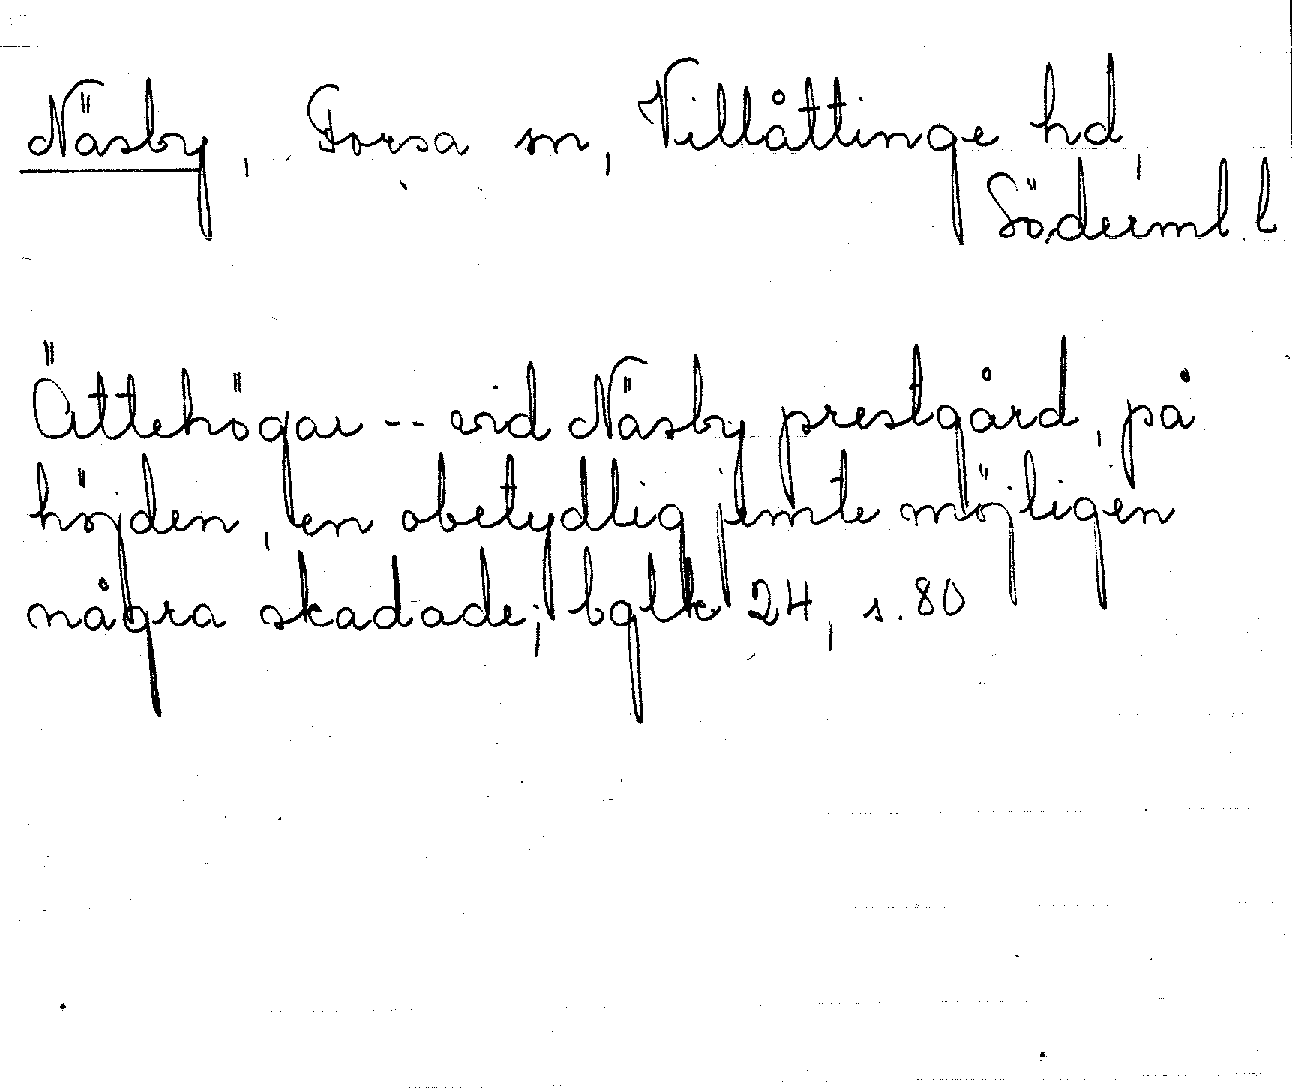 Näsby, Forsa sn, Villåttinge hd,
Söderml. l
Ättehögar -- vid Näsby prestgård, på
höjden, en obetydlig jemte möjligen
några skadade; bglk 24, s. 80